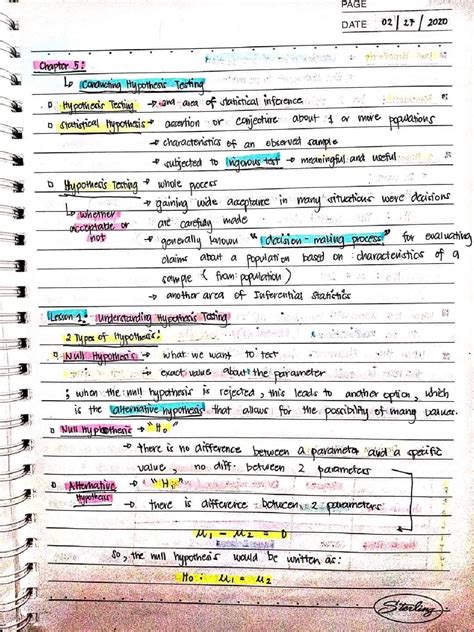 PAGE
DATE 02/27/2020
Chapter 5:
↳ Conducting Hypothesis Testing
▫ Hypothesis Testing → 2nd area of statistical inference
▫ Statistical Hypothesis → assertion or conjecture about 1 or more populations
→ characteristics of an observed sample
→ subjected to rigorous test → meaningful and useful
▫ Hypothesis Testing → whole process
→ gaining wide acceptance in many situations were decisions
↳ whether acceptable or not
are carefully made
→ generally known "decision-making process" for evaluating
claims about a population based on characteristics of a
sample (from: population)
→ another area of Inferential Statistics
Lesson 1: Understanding Hypothesis Testing
2 Types of Hypothesis:
▫ Null Hypothesis → what we want to test
→ exact value about the parameter
; when the null hypothesis is rejected, this leads to another option, which
is the alternative hypothesis that allows for the possibility of many values.
▫ Null Hypothesis → "Ho"
→ there is no difference between a parameter and a specific
value, no diff. between 2 parameters
▫ Alternative Hypothesis →
→ there is difference between 2 parameters
μ1 - μ2 = 0
So, the null hypothesis would be written as:
Ho: μ1 = μ2
Sterling